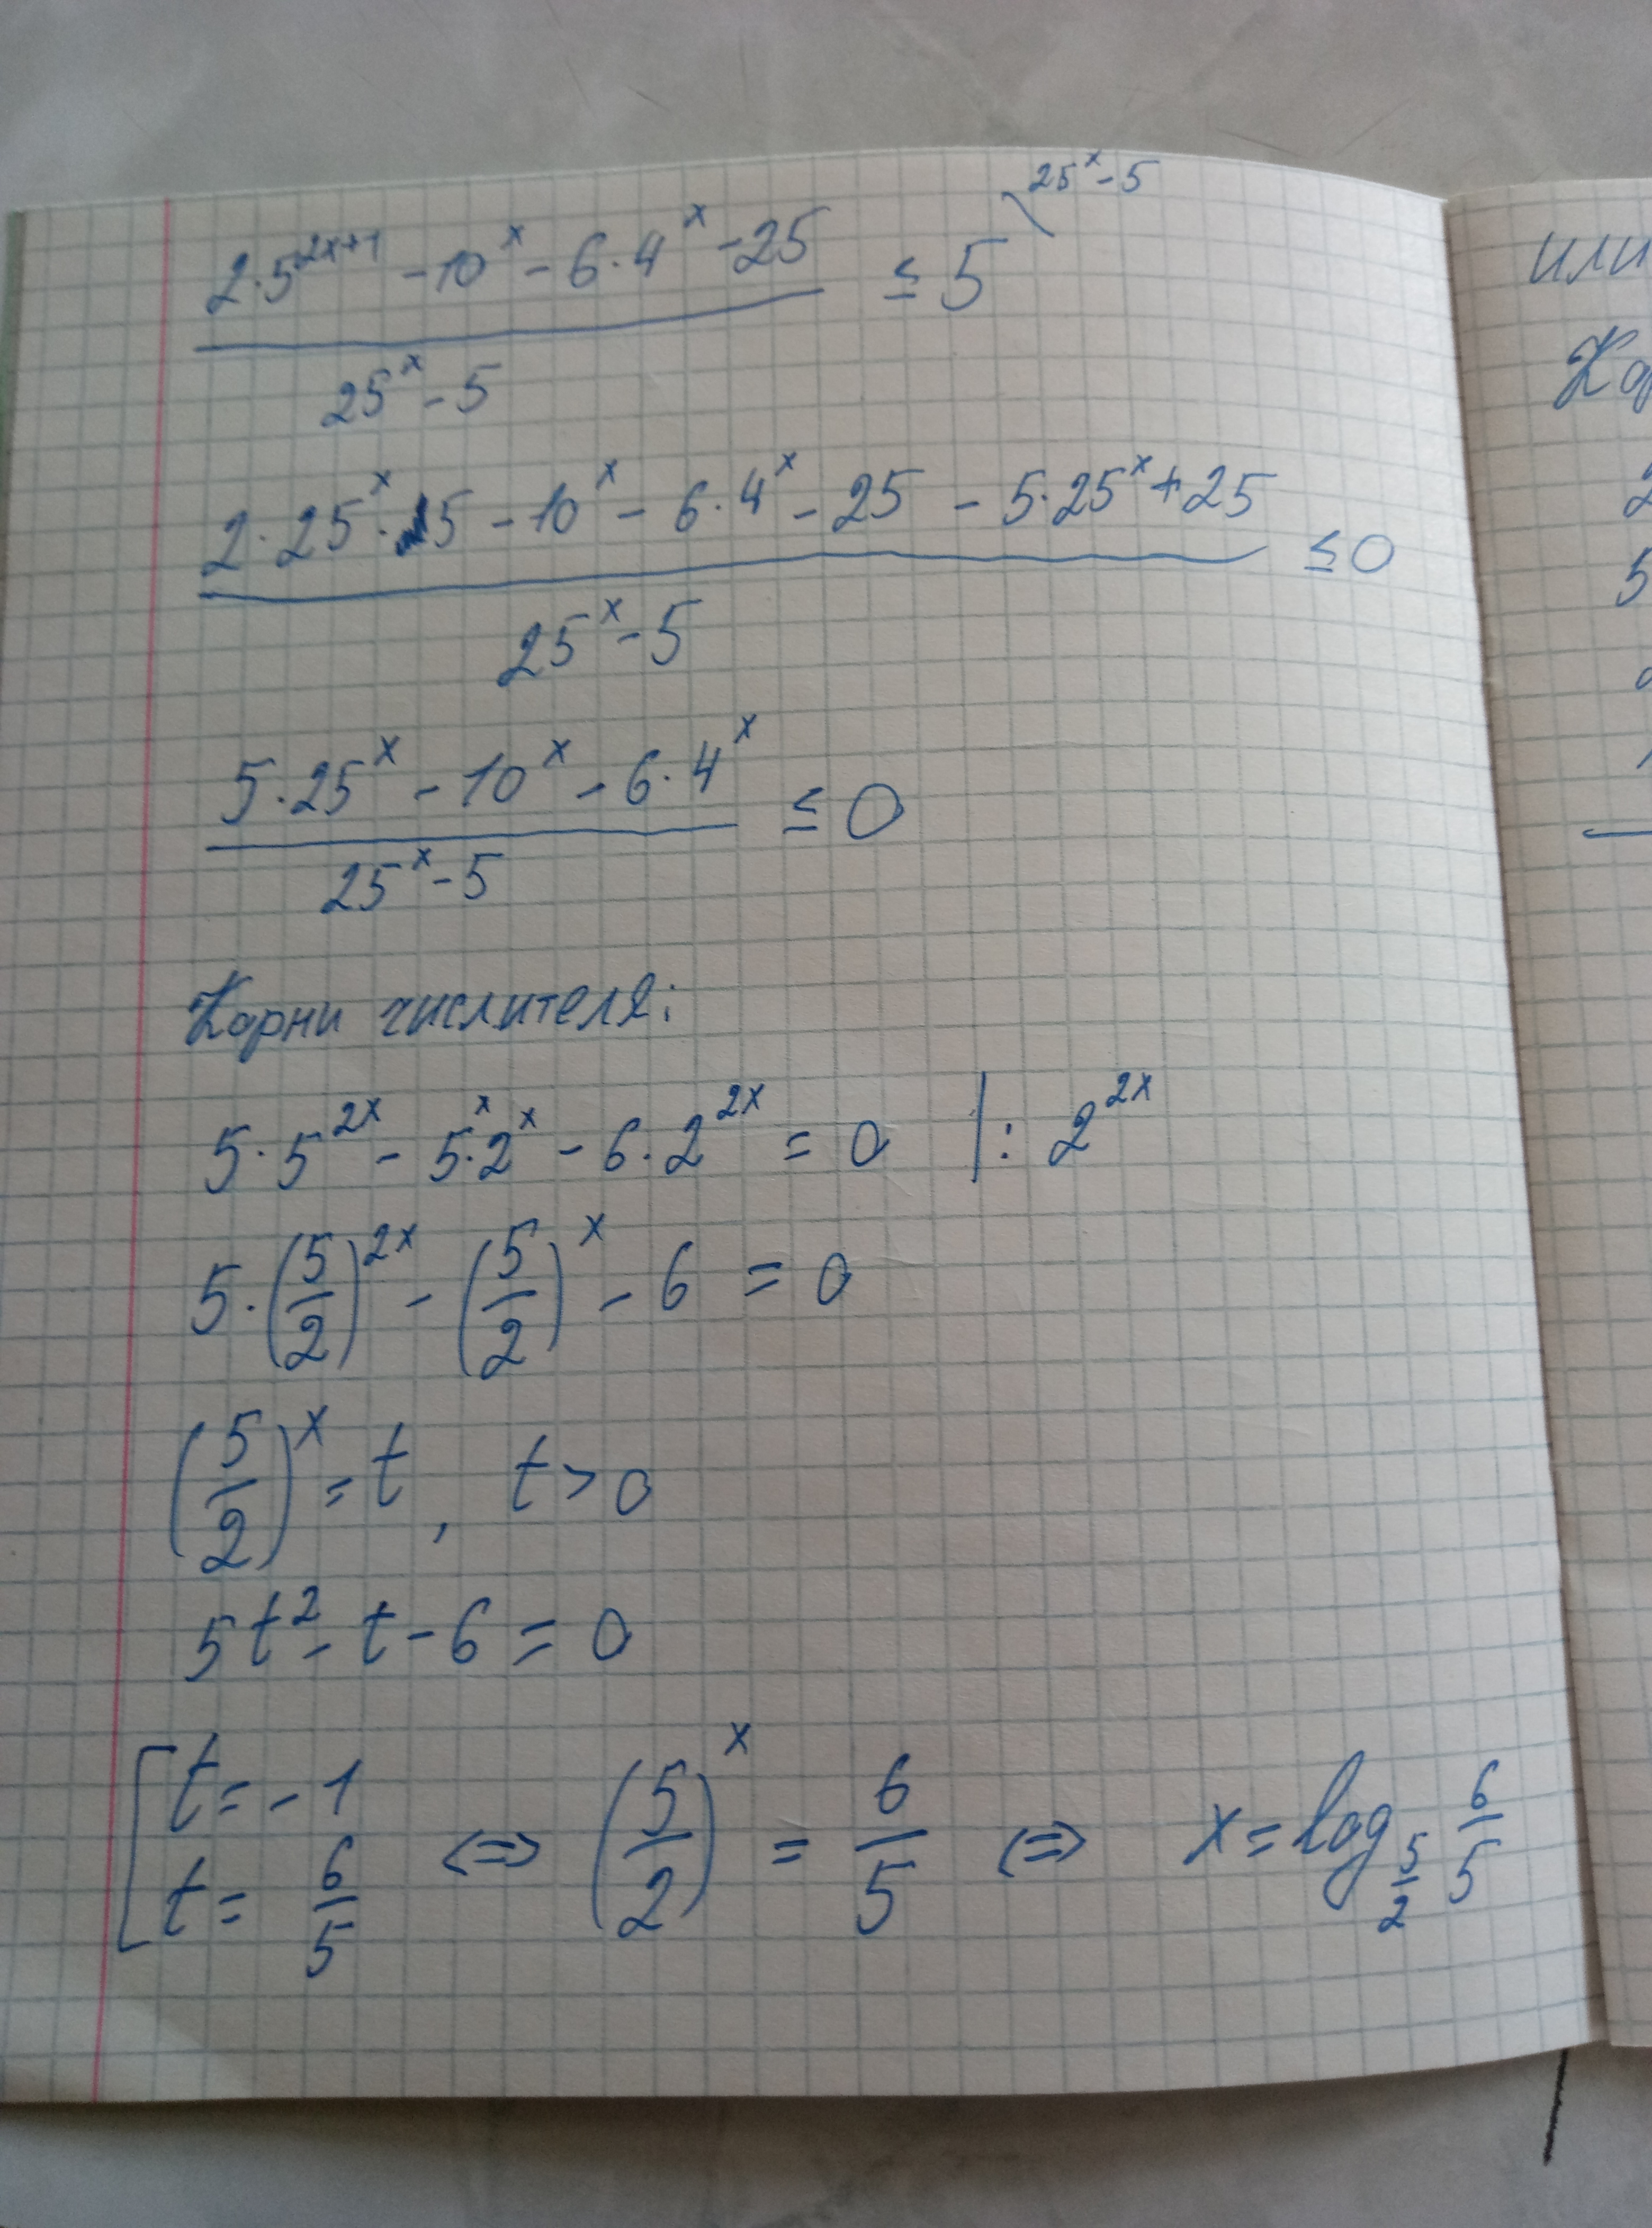 (2·5^(2x+1) - 10^x - 6·4^x - 25)/(25^x - 5) ≤ 5 \ 25^x - 5
(2·25^x·5 - 10^x - 6·4^x - 25 - 5·25^x + 25)/(25^x - 5) ≤ 0
(5·25^x - 10^x - 6·4^x)/(25^x - 5) ≤ 0
Корни числителя:
5·5^(2x) - 5^x·2^x - 6·2^(2x) = 0 |: 2^(2x)
5·(5/2)^(2x) - (5/2)^x - 6 = 0
(5/2)^x = t, t > 0
5t² - t - 6 = 0
[t = -1
t = 6/5 <=> (5/2)^x = 6/5 <=> x = log_(5/2) 6/5
или